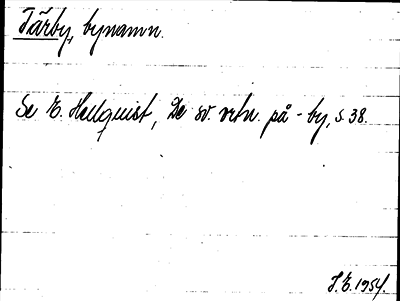 Tärby, bynamn.
Se E. Hellquist, De sv. ortn. på -by, s. 38.
J.E. 1954.